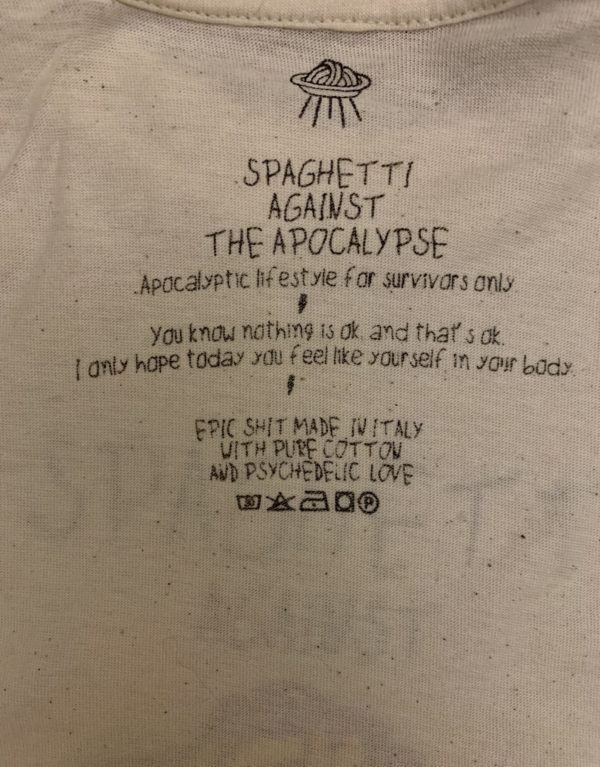 SPAGHETTI
AGAINST
THE APOCALYPSE
Apocalyptic lifestyle for survivors only
You know nothing is ok and that's ok.
I only hope today you feel like yourself in your body.
EPIC SHIT MADE IN ITALY
WITH PURE COTTON
AND PSYCHEDELIC LOVE
P